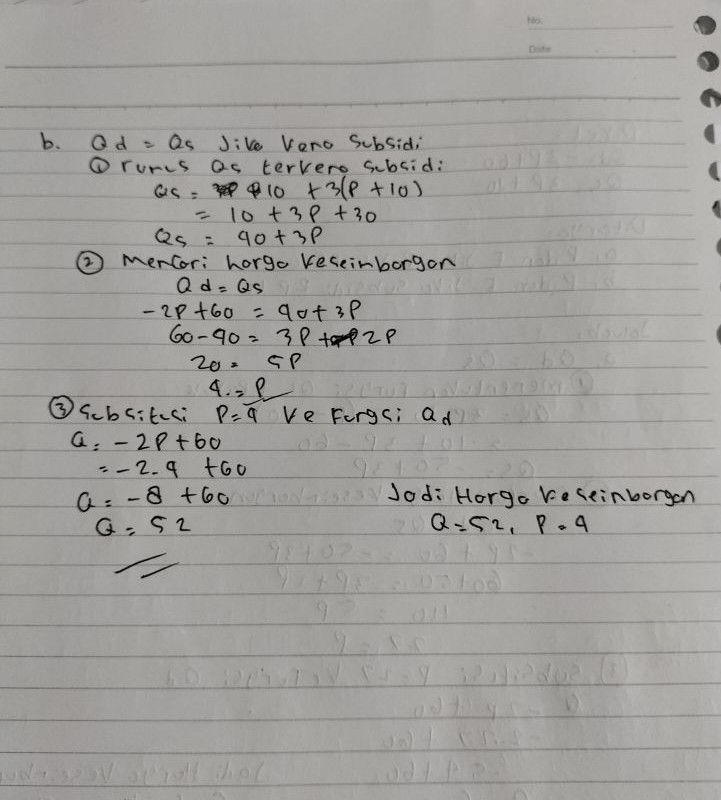 No.
Date
b. Qd = Qs Jika kena Subsidi
① rumus Qs terkena subsidi
Qs = 10 + 3(P + 10)
= 10 + 3P + 30
Qs = 40 + 3P
② Mencari harga keseinbangan
Qd = Qs
-2P + 60 = 40 + 3P
60 - 40 = 3P + 2P
20 = 5P
4 = P
③ Subsitusi P = 4 ke Fungsi Qd
Q = -2P + 60
= -2.4 + 60
Q = -8 + 60 Jadi Harga keseinbangan
Q = 52 Q = 52, P = 4